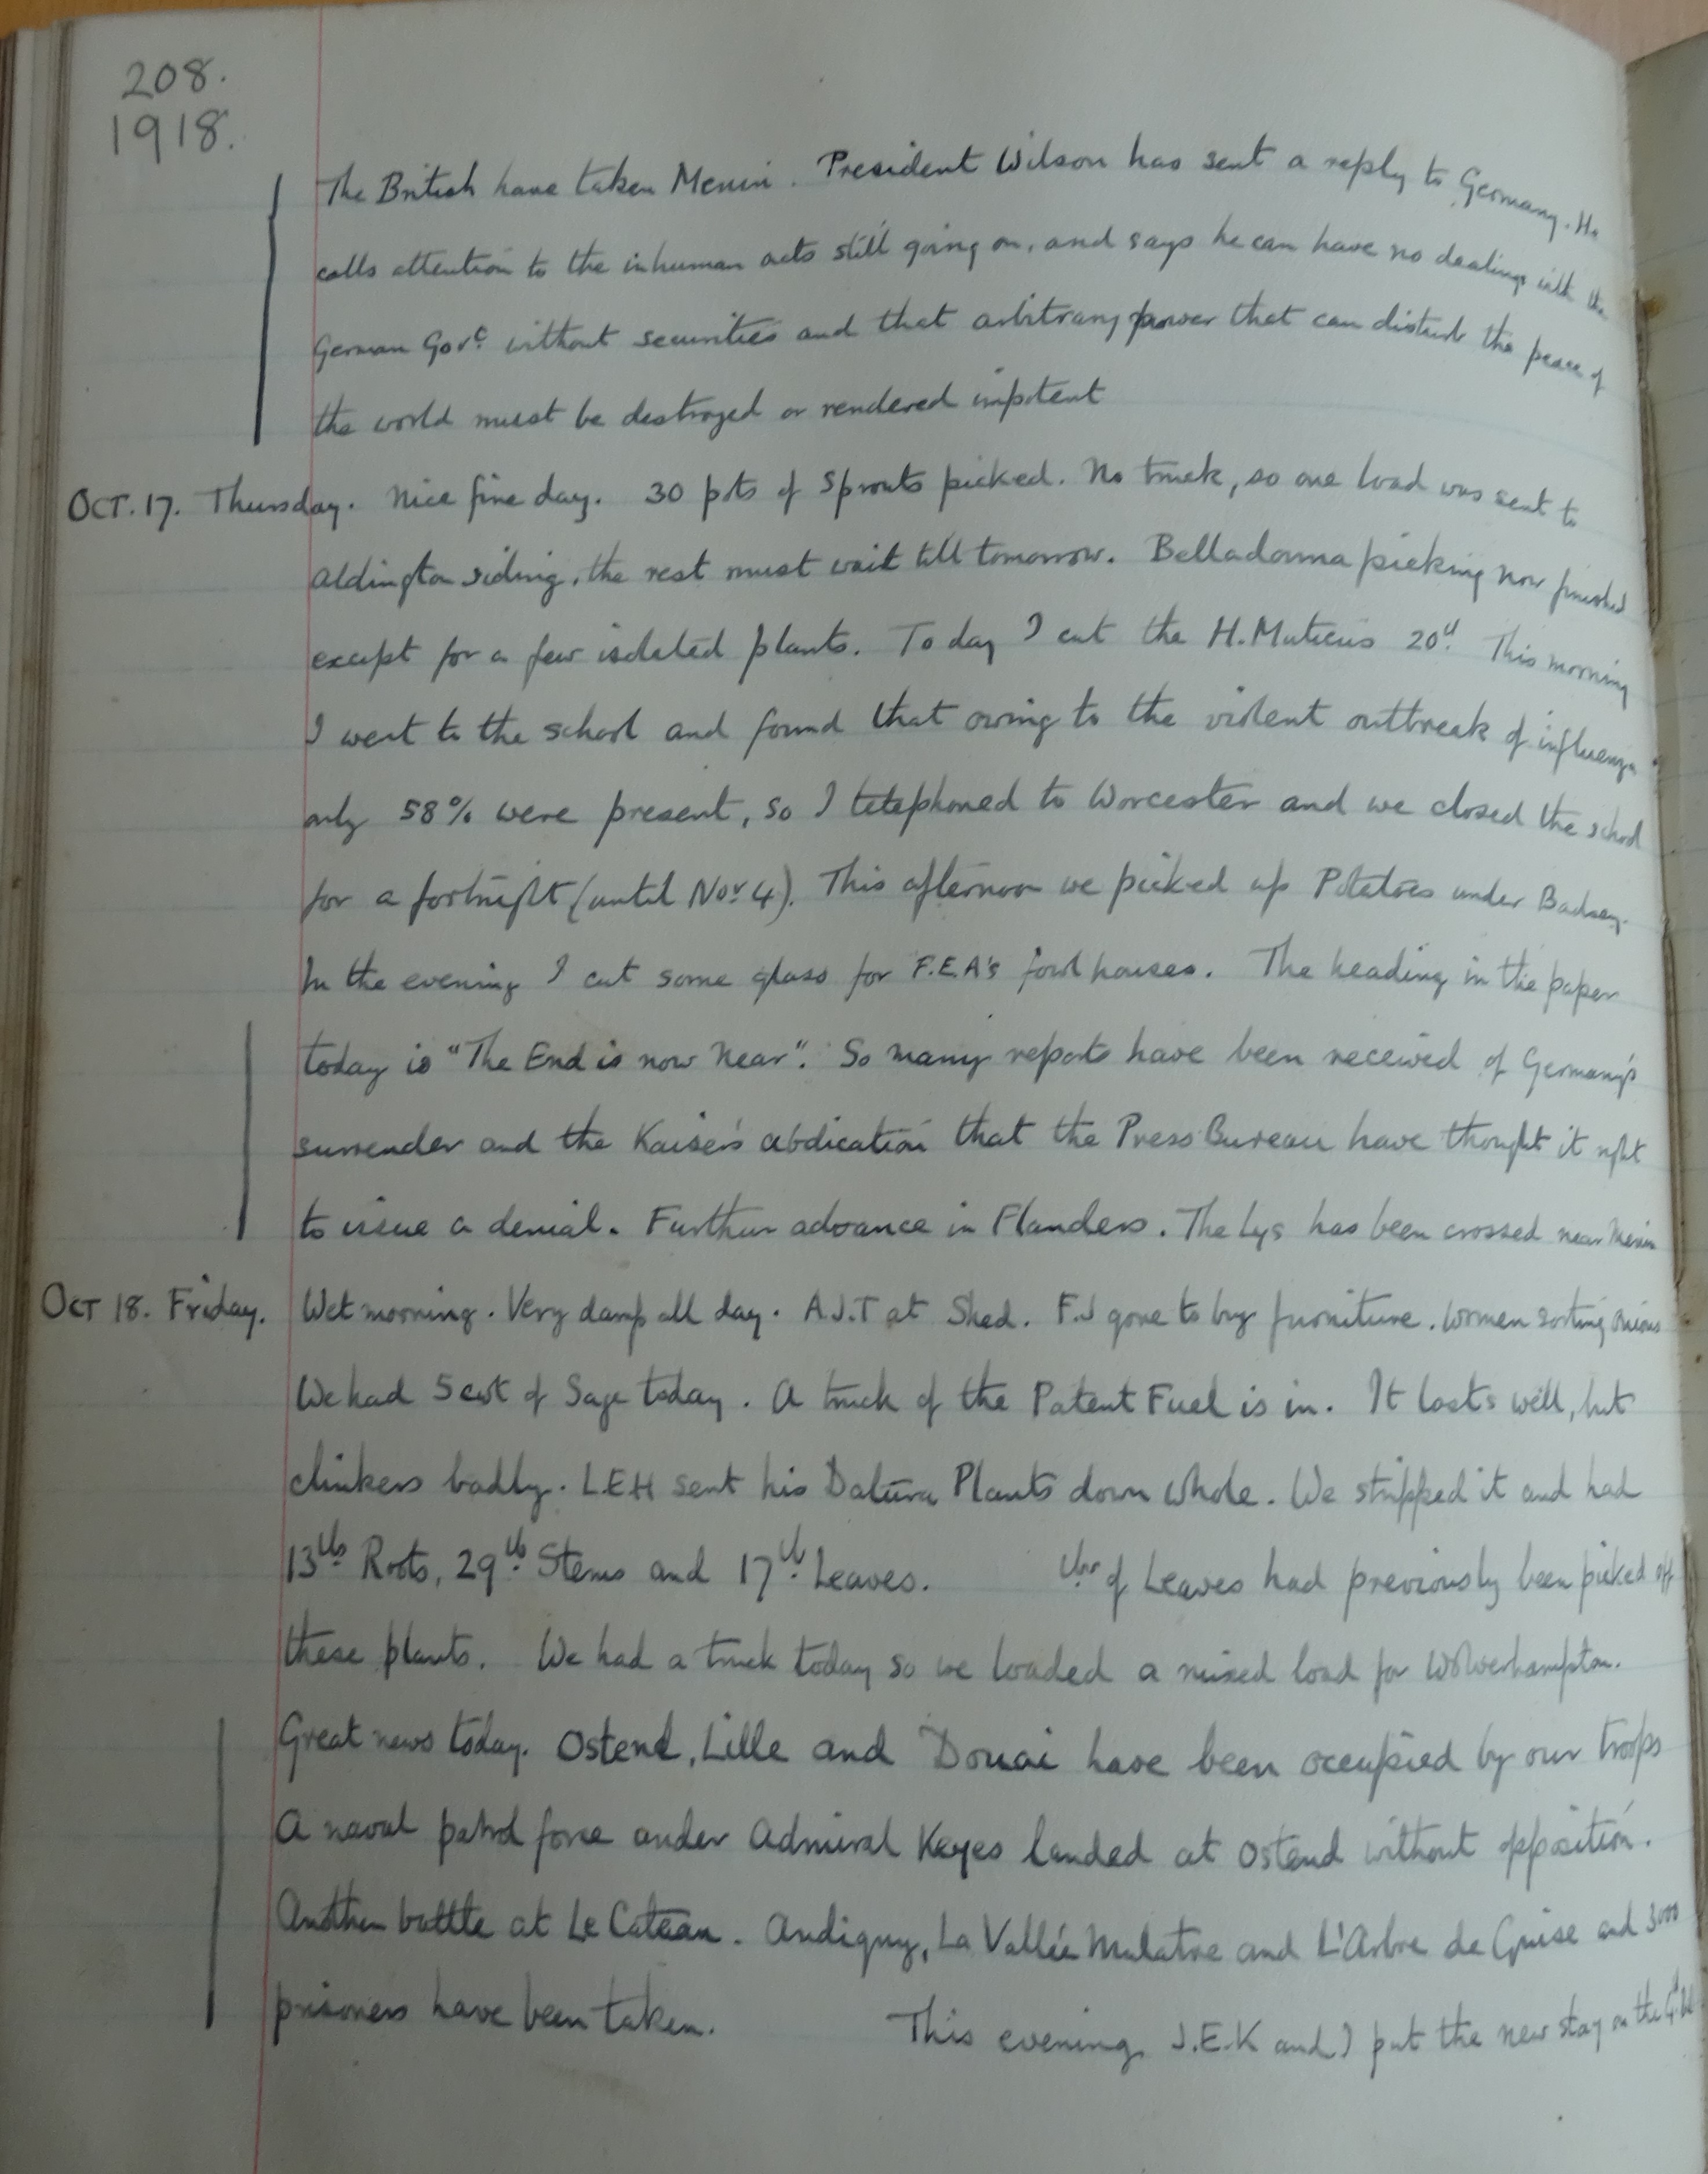 208.
1918.
The British have taken Menin. President Wilson has sent a reply to Germany. He
calls attention to the inhuman acts still going on, and says he can have no dealings with the
German Govt. without securities and that arbitrary power that can disturb the peace of
the world must be destroyed or rendered impotent
OCT. 17. Thursday. Nice fine day. 30 pots of Sprouts picked. No truck, so one load was sent to
Aldington siding, the rest must wait till tomorrow. Belladonna picking now finished
except for a few isolated plants. Today I cut the H. Muticus 20 lb. This morning
I went to the school and found that owing to the violent outbreak of influenza
only 58% were present, so I telephoned to Worcester and we closed the school
for a fortnight (until Nov. 4). This afternoon we picked up Potatoes under Badsey.
In the evening I cut some glass for F.E.A's fowl houses. The heading in the paper
today is "The End is now Near". So many reports have been received of Germany's
surrender and the Kaiser's abdication that the Press Bureau have thought it right
to issue a denial. Further advance in Flanders. The Lys has been crossed near Menin
OCT 18. Friday. Wet morning. Very damp all day. A.J.T at Shed. F.J gone to buy furniture. Women sorting Onions
We had 5 cwt of Sage today. A truck of the Patent Fuel is in. It lasts well, but
clinkers badly. L.E.H sent his Datura Plants down whole. We stripped it and had
13 lbs. Roots, 29 lb. Stems and 17 lb. Leaves. lbs of Leaves had previously been picked off
these plants. We had a truck today so we loaded a mixed load for Wolverhampton.
Great news today. Ostend, Lille and Douai have been occupied by our troops
A naval patrol force under Admiral Keyes landed at Ostend without opposition.
Another battle at Le Cateau. Andigny, La Vallée Mulatre and L'Arbre de Guise and 3000
prisoners have been taken. This evening J.E.K and I put the new stay on the